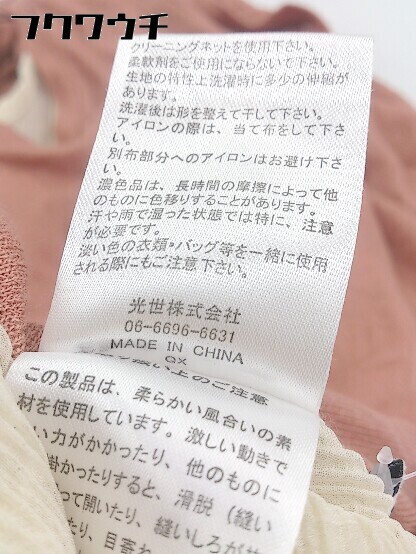 フクワウチ
クリーニングネットを使用下さい。
柔軟剤をご使用にならないで下さい。
生地の特性上洗濯時に多少の伸縮が
あります。
洗濯後は形を整えて干して下さい。
アイロンの際は、当て布をして下さい。
別布部分へのアイロンはお避け下さ
い。
濃色品は、長時間の摩擦によって他
のものに色移りすることがあります。
汗や雨で湿った状態では特に、注意
が必要です。
淡い色の衣類・バッグ等を一緒に使用
される際にもご注意下さい。
光世株式会社
06-6696-6631
MADE IN CHINA
QX
扱い上のご注意
この製品は、柔らかい風合いの素
材を使用しています。激しい動きで
い力がかかったり、他のものに
掛かったりすると、滑脱（縫い
って開いたり、縫いしろが
たり、目寄れ